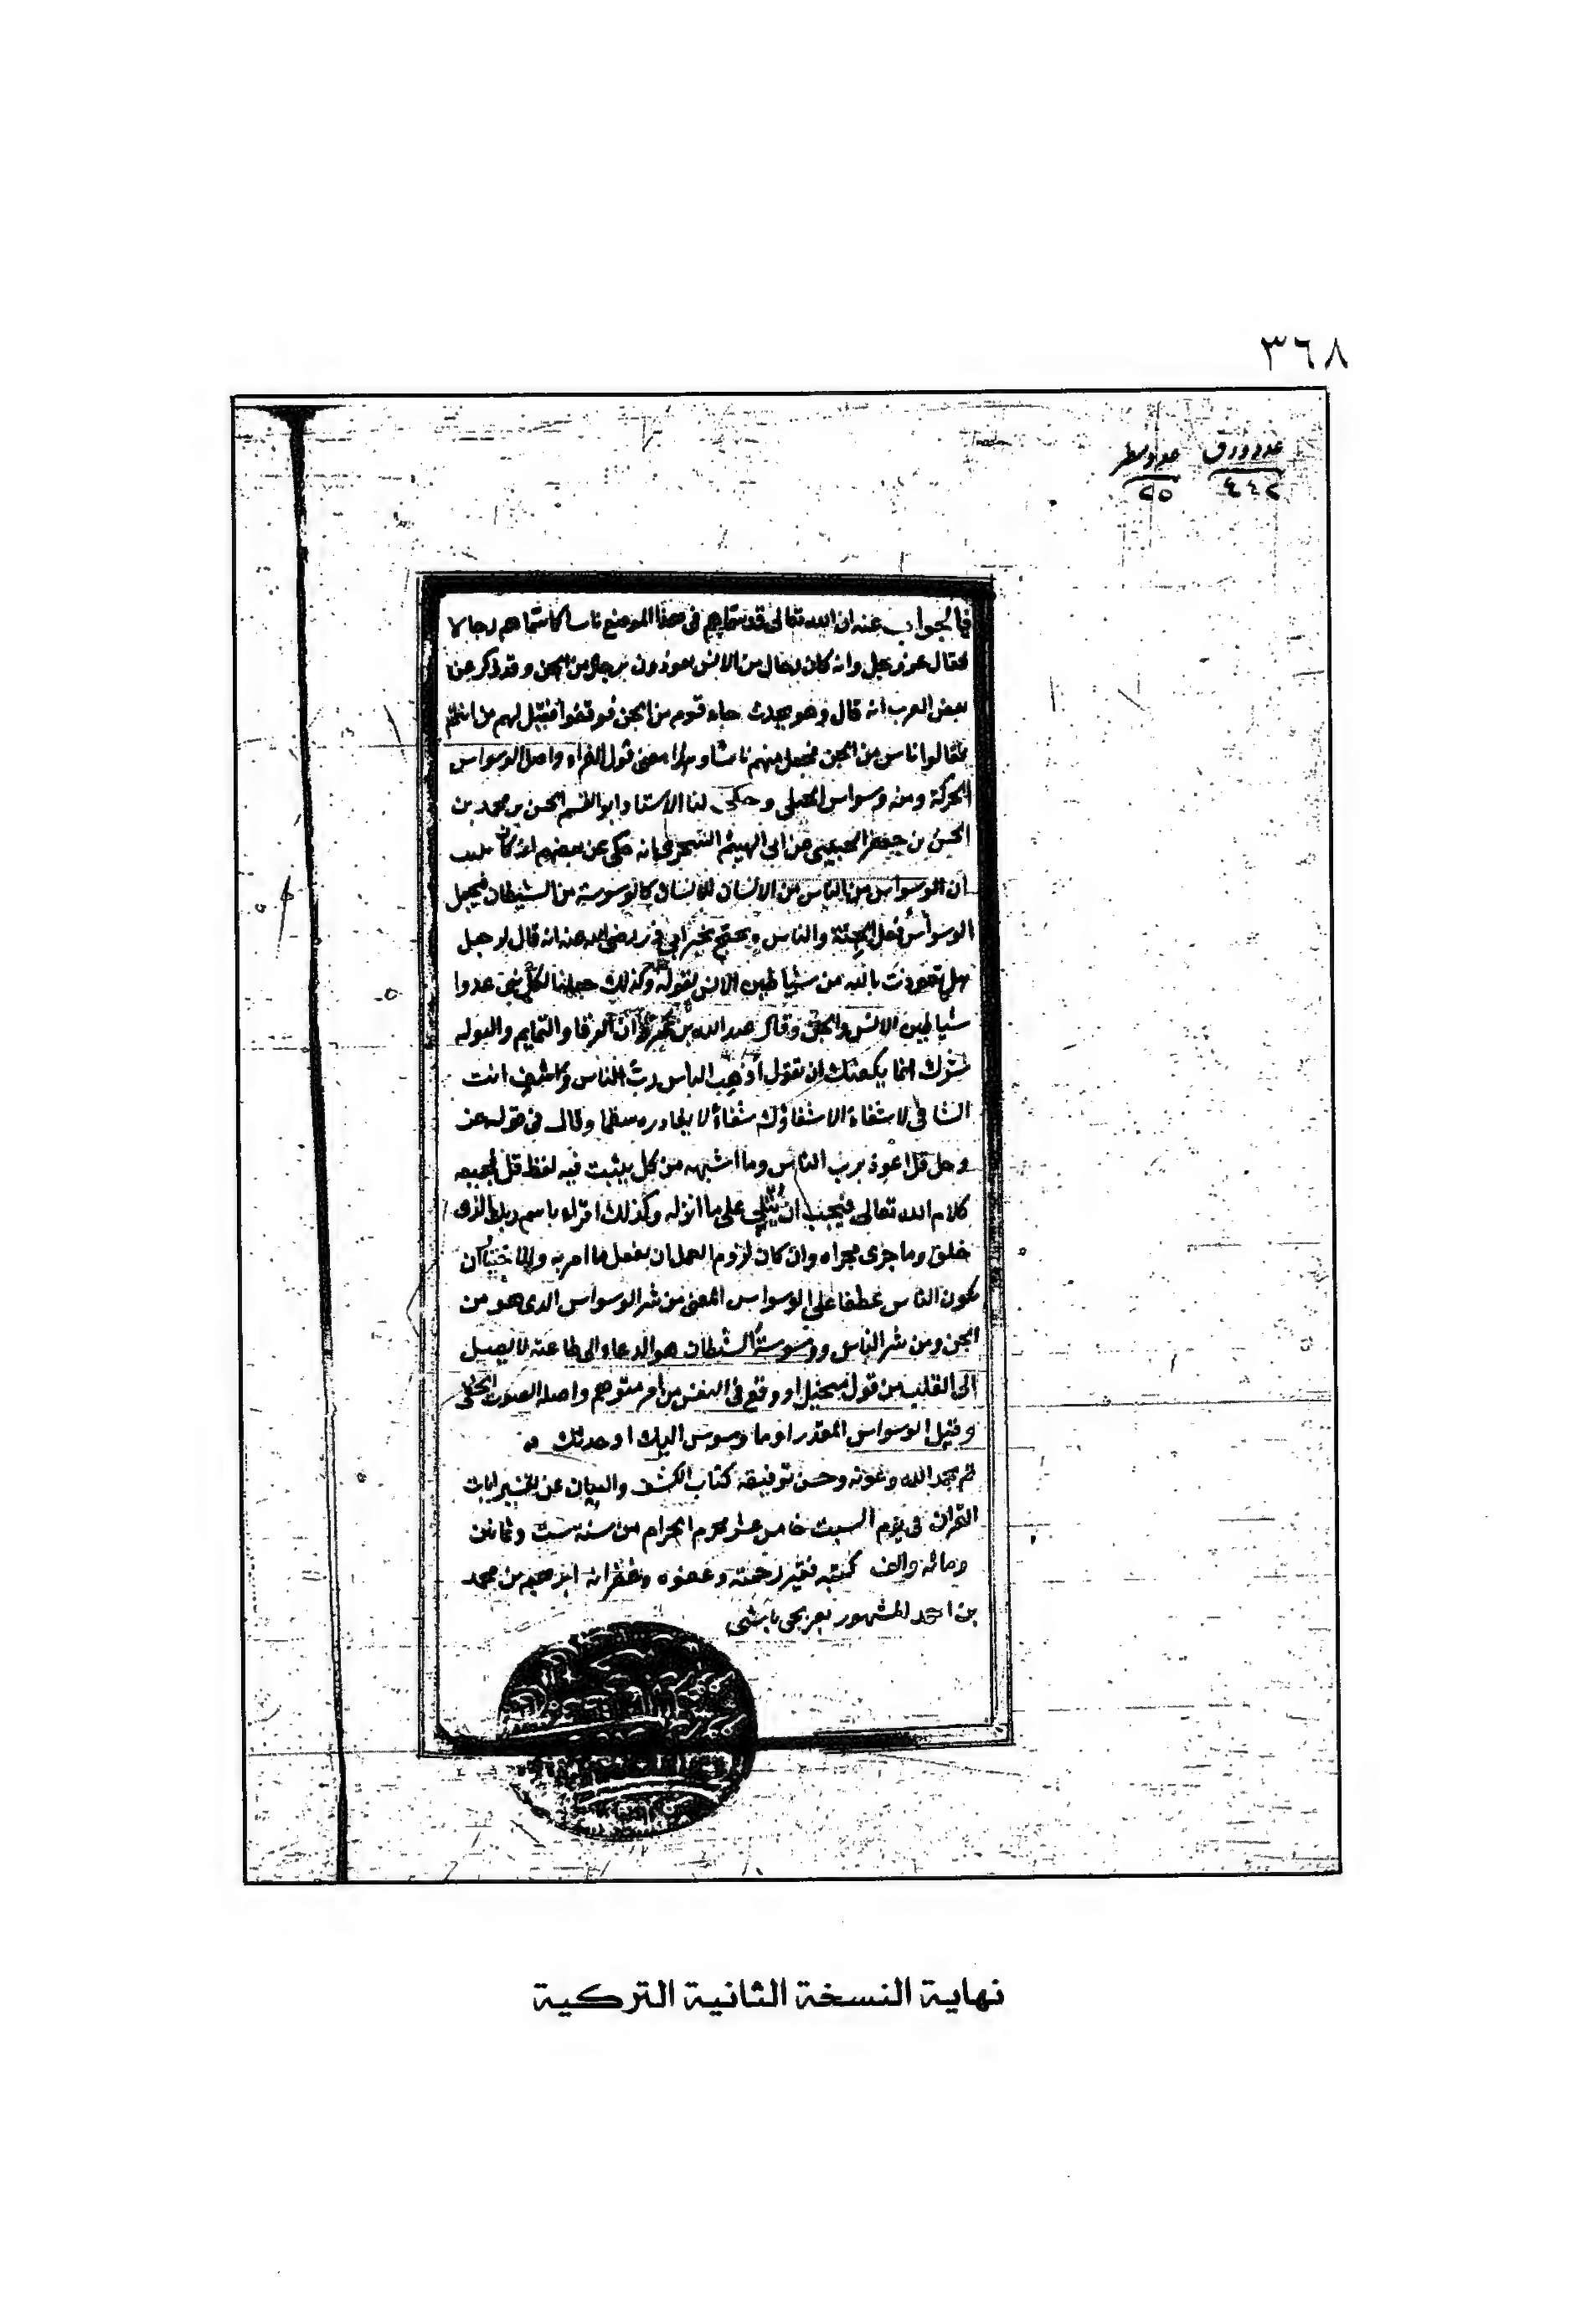 ٣٦٨
عدد ورق عدد سطر
٤٤٢ ٢٥
فالجواب عنه ان الله تعالى قد سماهم في هذا الموضع ناسا كما سماهم رجالا
فقال عز وجل وانه كان رجال من الانس يعوذون برجال من الجن وقد ذكر عن
بعض العرب انه قال وهو يحدث جاء قوم من الجن فوقفوا فقيل لهم من انتم
فقالوا ناس من الجن فجعل منهم ناسا وهذا معنى قول الفراء واصل الوسواس
الحركة ومنه وسواس الحلي وحكى لنا الاستاد ابو القسم الحسن بن محمد بن
الحسن بن جعفر عن ابي الهيثم السجزي انه حكى عن بعضهم انه كان
ان الوسواس من الناس من الانسان للانسان كالوسوسة من الشيطان فجعل
الوسواس فعل الجنة والناس ويحتج بخبر ابي ذر رضي الله عنه انه قال لرجل
هل تعوذت بالله من شياطين الانس لقوله وكذلك جعلنا لكل نبي عدوا
شياطين الانس والجن وقال عبد الله بن ان الرقا والتمايم والتوله
شرك انما يكفيك ان تقول اذهب الباس رب الناس واشف انت
الشافي لا شفاء الا شفاؤك شفاء لا يغادره سقما وقال في قوله عز
وجل قل اعوذ برب الناس وما اشبهه من كل يثبت فيه لفظ قل
كلام الله تعالى فيجب ان يتلى على ما انزله وكذلك اقراء باسم ربك الذى
خلق وما جرى مجراه وان كان لزوم العمل ان يفعل ما امر به ان
يكون الناس عطفا على الوسواس المعنى من شر الوسواس الدى هو من
الجن ومن شر الناس ووسوسة الشيطان هو الدعاء الى طاعته لا يصل
الى القلب من قول متخيل او وقع في النفس من امر متوهم واصله الصوت الخفي
وقيل الوسواس المقدر او ما وسوس اليك او حدثك
تم بحمد الله وعونه وحسن توفيقه كتاب الكشف والبيان عن تفسير ايات
القران في يوم السبت خامس عشر محرم الحرام من سنة ست وثمانين
ومائه والف كتبه فقير رحمته وعفوه وغفرانه ابرهيم بن محمد
بن احمد المشهور بعربجي باشى
نهاية النسخة الثانية التركية